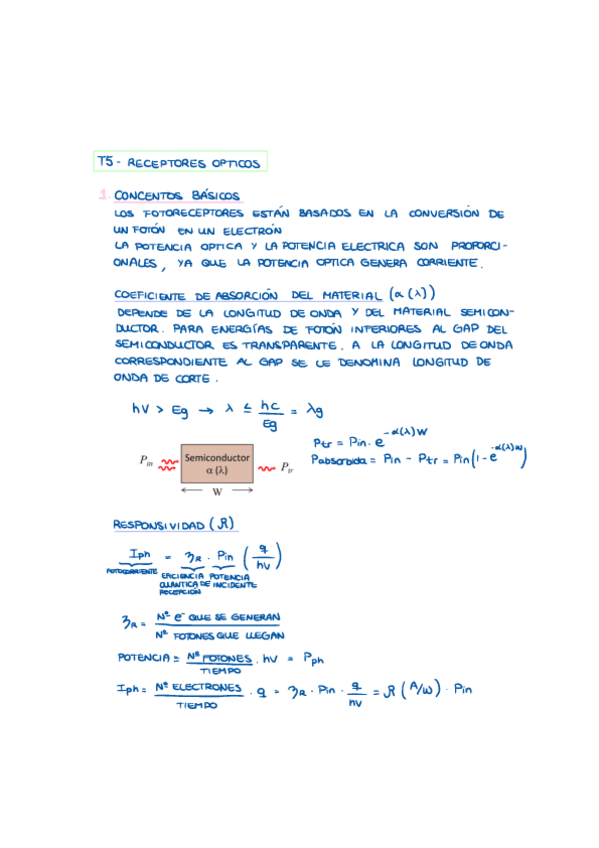 T5 - RECEPTORES OPTICOS
1. CONCENTOS BÁSICOS
LOS FOTORECEPTORES ESTÁN BASADOS EN LA CONVERSIÓN DE
UN FOTÓN EN UN ELECTRÓN
LA POTENCIA OPTICA Y LA POTENCIA ELECTRICA SON PROPORCI-
ONALES, YA QUE LA POTENCIA OPTICA GENERA CORRIENTE.
COEFICIENTE DE ABSORCIÓN DEL MATERIAL (α(λ))
DEPENDE DE LA LONGITUD DE ONDA Y DEL MATERIAL SEMICON-
DUCTOR. PARA ENERGÍAS DE FOTÓN INFERIORES AL GAP DEL
SEMICONDUCTOR ES TRANSPARENTE. A LA LONGITUD DE ONDA
CORRESPONDIENTE AL GAP SE LE DENOMINA LONGITUD DE
ONDA DE CORTE.
hV > Eg → λ ≤ hc/Eg = λg
Ptr = Pin · e^-α(λ)W
Pabsorbida = Pin - Ptr = Pin(1 - e^-α(λ)W)
Pin Semiconductor α (λ) Ptr
W
RESPONSIVIDAD (R)
Iph = ηR · Pin (q/hν)
FOTOCORRIENTE EFICIENCIA CUANTICA DE RECEPCIÓN POTENCIA INCIDENTE
ηR = Nº e⁻ QUE SE GENERAN / Nº FOTONES QUE LLEGAN
POTENCIA = Nº FOTONES/TIEMPO · hν = Pph
Iph = Nº ELECTRONES/TIEMPO · q = ηR · Pin · q/hν = R (A/W) · Pin